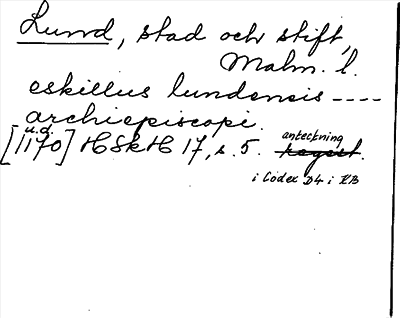 Lund, stad och stift,
Malm. l.
eskillus lundensis ----
archiepiscopi.
u.å.
[1170] HSkH 17, s. 5. anteckning
regest.
i Codex D4 i KB